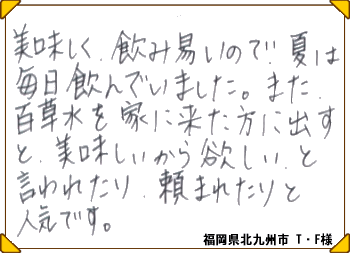 美味しく、飲み易いので、夏は
毎日飲んでいました。また、
百草水を家に来た方に出す
と、美味しいから欲しい、と
言われたり、頼まれたりと
人気です。
福岡県北九州市 T・F様